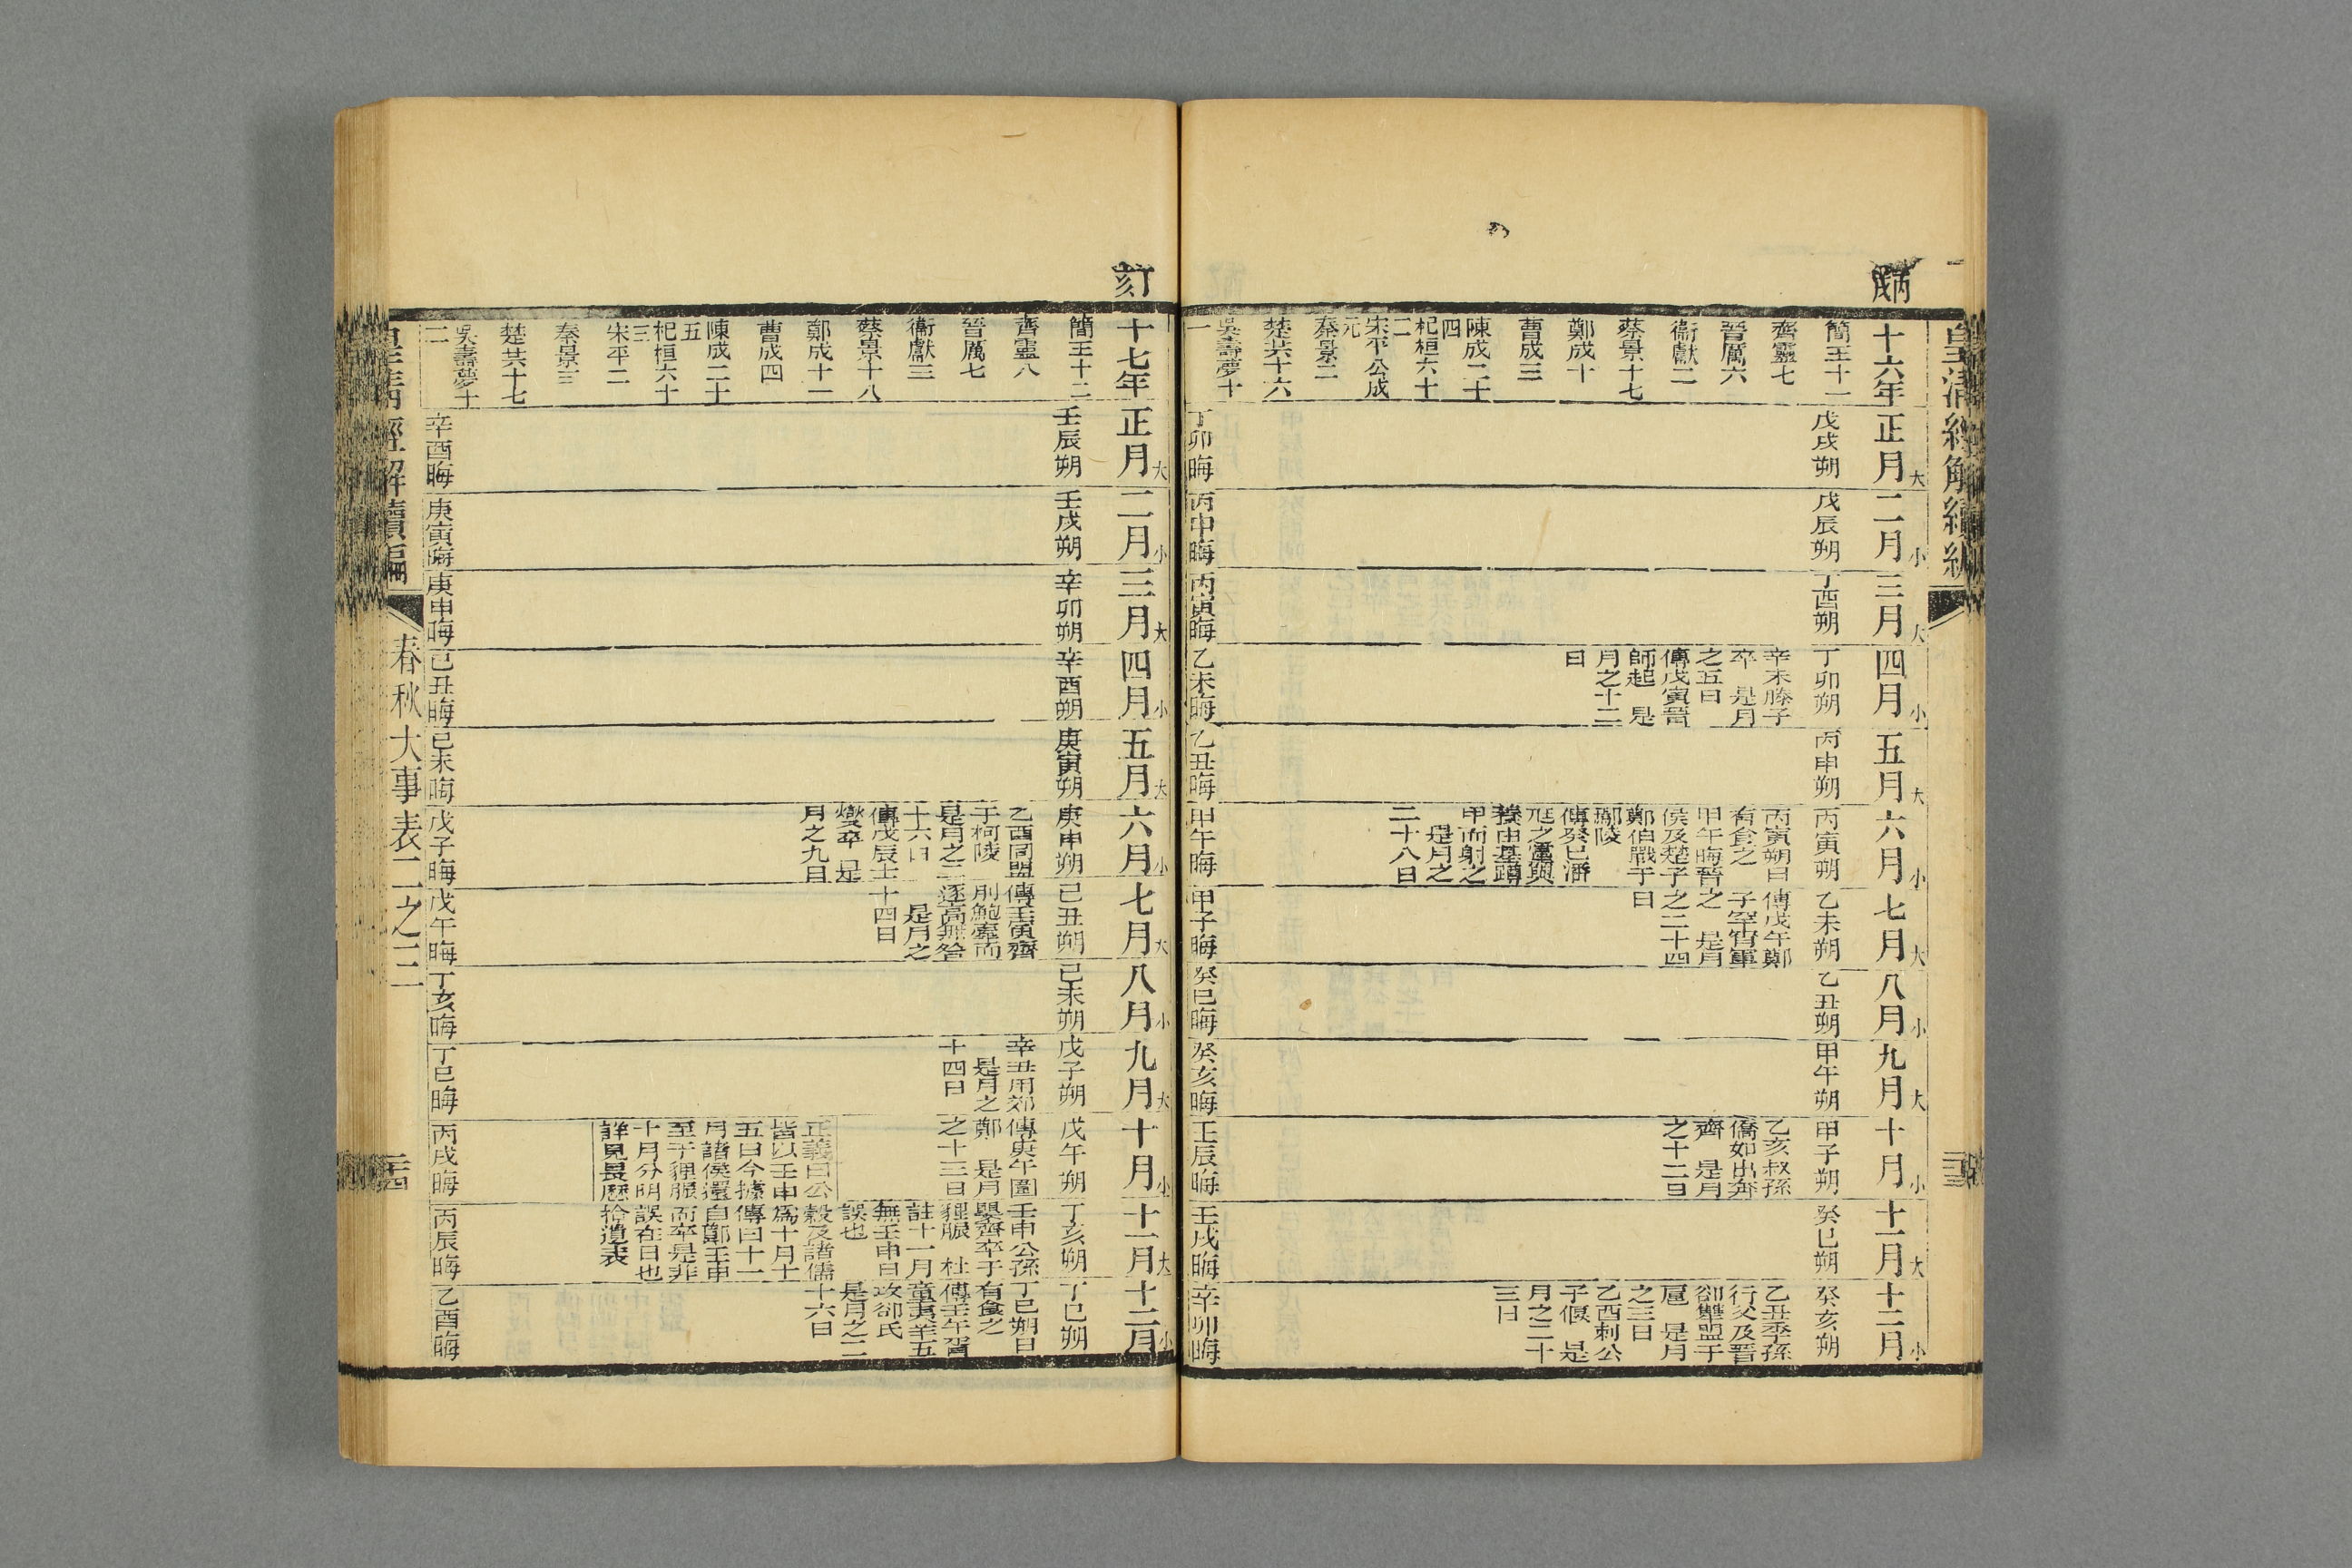 皇清經解續編
丙戌
十六年
簡王十一
齊靈七
晉厲六
衞獻二
蔡景十七
鄭成十
曹成三
陳成二十
四
杞桓六十
二
宋平公成
元
秦景二
楚共十六
吳壽夢十
一
正月大
戊戌朔
丁卯晦
二月小
戊辰朔
丙申晦
三月大
丁酉朔
丙寅晦
四月小
丁卯朔
辛未滕子
卒 是月
之五日
傳戊寅晉
師起 是
月之十二
日
乙未晦
五月大
丙申朔
乙丑晦
六月小
丙寅朔
丙寅朔日
有食之
甲午晦晉
侯及楚子
鄭伯戰于
鄢陵
傳癸巳潘
尫之黨與
養由基蹲
甲而射之
是月之
二十八日
甲午晦
七月大
乙未朔
傳戊午鄭
子罕宵軍
之 是月
之二十四
日
甲子晦
八月小
乙丑朔
癸巳晦
九月大
甲午朔
癸亥晦
十月小
甲子朔
乙亥叔孫
僑如出奔
齊 是月
之十二日
壬辰晦
十一月大
癸巳朔
壬戌晦
十二月小
癸亥朔
乙丑季孫
行父及晉
郤犫盟于
扈 是月
之三日
乙酉刺公
子偃 是
月之二十
三日
辛卯晦
丁亥
十七年
簡王十二
齊靈八
晉厲七
衞獻三
蔡景十八
鄭成十一
曹成四
陳成二十
五
杞桓六十
三
宋平二
秦景三
楚共十七
吳壽夢十
二
正月大
壬辰朔
辛酉晦
二月小
壬戌朔
庚寅晦
三月大
辛卯朔
庚申晦
四月小
辛酉朔
己丑晦
五月大
庚寅朔
己未晦
六月小
庚申朔
乙酉同盟
于柯陵
是月之二
十六日
傳戊辰士
燮卒 是
月之九日
戊子晦
七月大
己丑朔
傳壬寅齊
刖鮑牽而
逐高無咎
是月之
十四日
戊午晦
八月小
己未朔
丁亥晦
九月大
戊子朔
辛丑用郊
是月之
十四日
丁巳晦
十月小
戊午朔
傳庚午圍
鄭 是月
之十三日
正義曰公
皆以壬申
五日今據
月諸侯還
至于貍脤
十月分明
詳見長歷
丙戌晦
十一月大
丁亥朔
壬申公孫
嬰齊卒于
貍脤 杜
註十一月
無壬申日
誤也
穀及諸儒
爲十月十
傳曰十一
自鄭壬申
而卒是非
誤在日也
拾遺表
丙辰晦
十二月小
丁巳朔
丁巳朔日
有食之
傳壬午胥
童夷羊五
攻郤氏
是月之二
十六日
乙酉晦
皇清經解續編
春秋大事表二之三